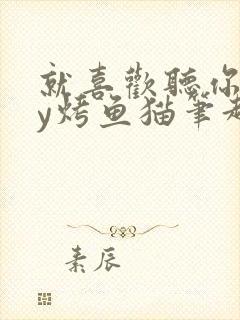 就喜歡聽你
y烤鱼猫笔趣
素辰